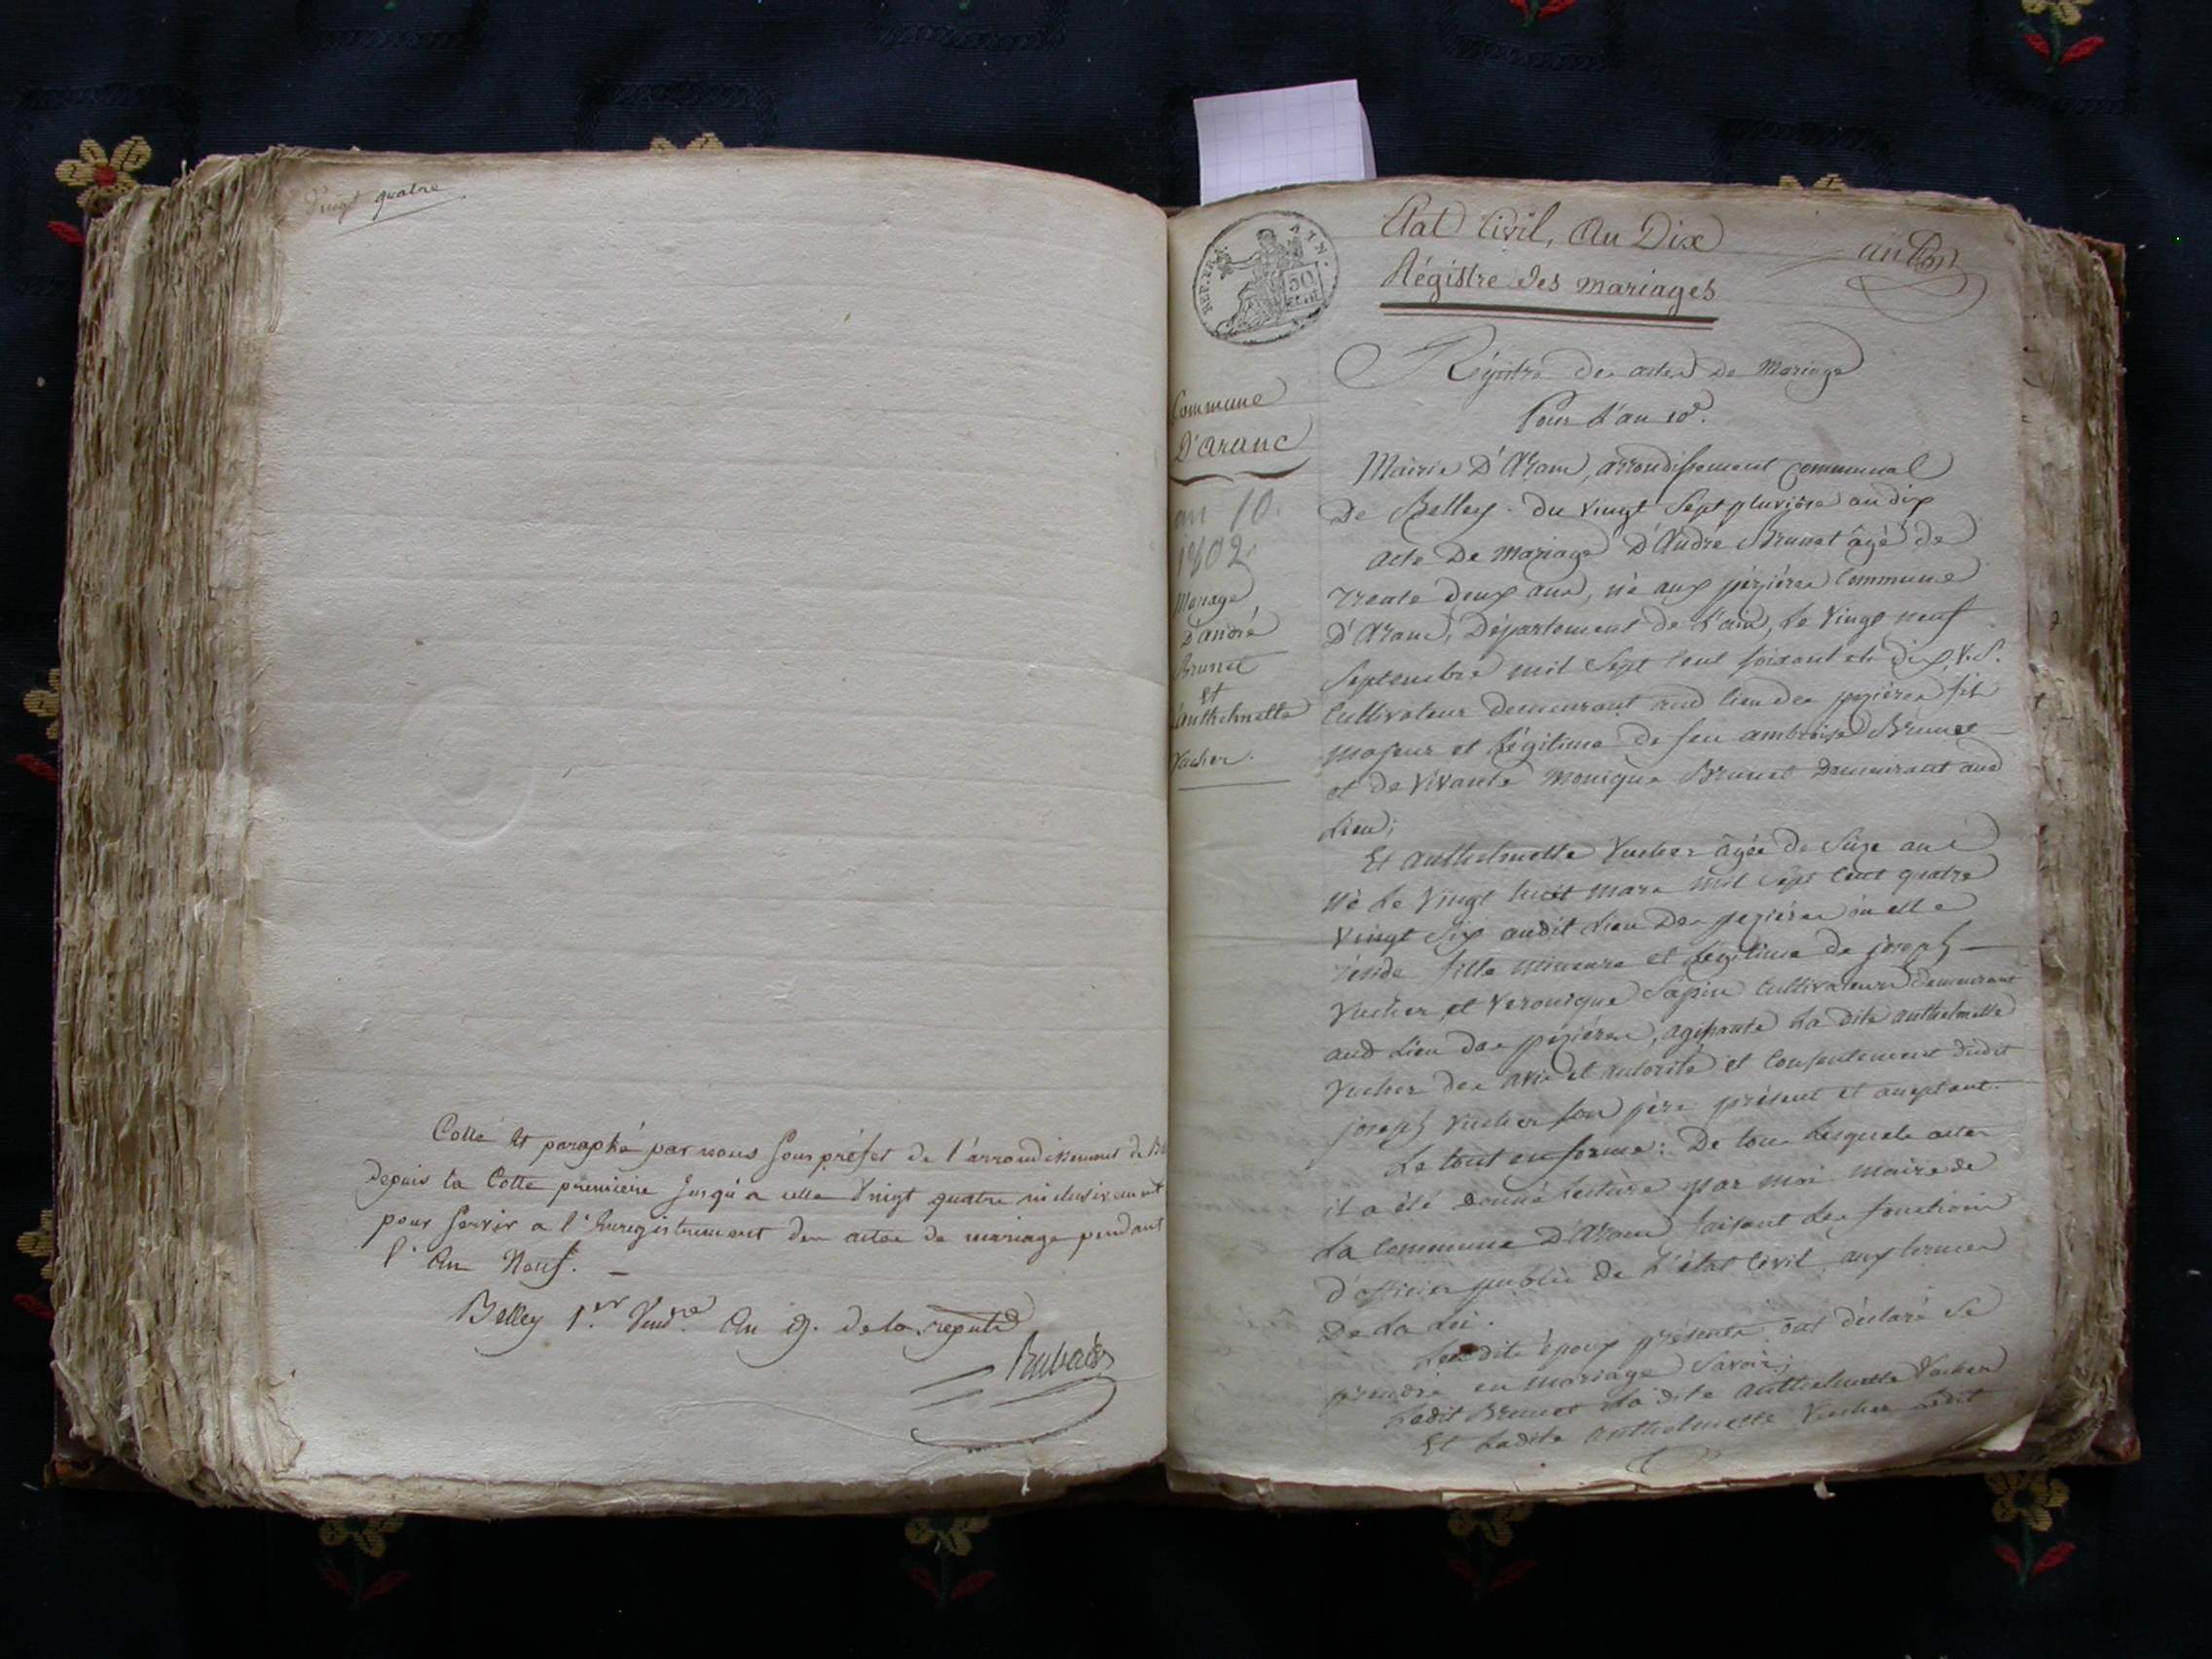 Vingt quatre
Cotté et paraphé par nous sous préfet de l'arrondissement de
depuis la Cotte premiere jusqu'a celle Vingt quatre inclusivement
pour servir a l'Enregistrement des actes de mariage pendant
l'An Neuf.
Belley 1.er Vend.re An 9. de la repub
REP. FRA.
50
CENT
Etat Civil, An Dix
Régistre des mariages
Commune
D'aranc
an 10.
1802
Mariage
D'andré
Brunet
Et
anthelmette
Vucher.
Régistre des actes De Mariage
Pour L'an 10e.
Mairie D'Aranc, arrondissement communal
De Belley - du vingt Sept pluviose an dix
Acte De Mariage D'André Brunet âgé de
trente deux ans, né aux pézières Commune
D'Aranc, Département de L'ain, Le Vingt neuf
Septembre mil Sept Cent soixante dix, V.S.
Cultivateur demeurant aud lieu des pezières fils
majeur et légitime de feu ambroise Brunet
et de Vivante Monique Brunet Demeurant aud
Lieu;
Et anthelmette Vucher âgée de Size ans
Né Le Vingt huit mars mil Sept Cent quatre
Vingt Six audit Lieu Des pezières ou elle
réside fille mineure et légitime de joseph
Vucher et Veronique Sapin Cultivateurs demeurant
aud Lieu des pézières, agissante La dite anthelmette
Vucher des avis et autorité et Consentement dudit
joseph Vucher son père présent et aceptant.
Le tout en forme: De tous Lesquels actes
il a été Donné lecture par moi maire de
La Commune D'Aranc faisant Les fonctions
d'officier public de L'état Civil aux termes
De La Loi.
Lesdits époux présents ont déclaré Se
prendre en mariage Savoir;
Ledit Brunet La dite Anthelmette Vucher
Et Ladite Anthelmette Vucher Ledit